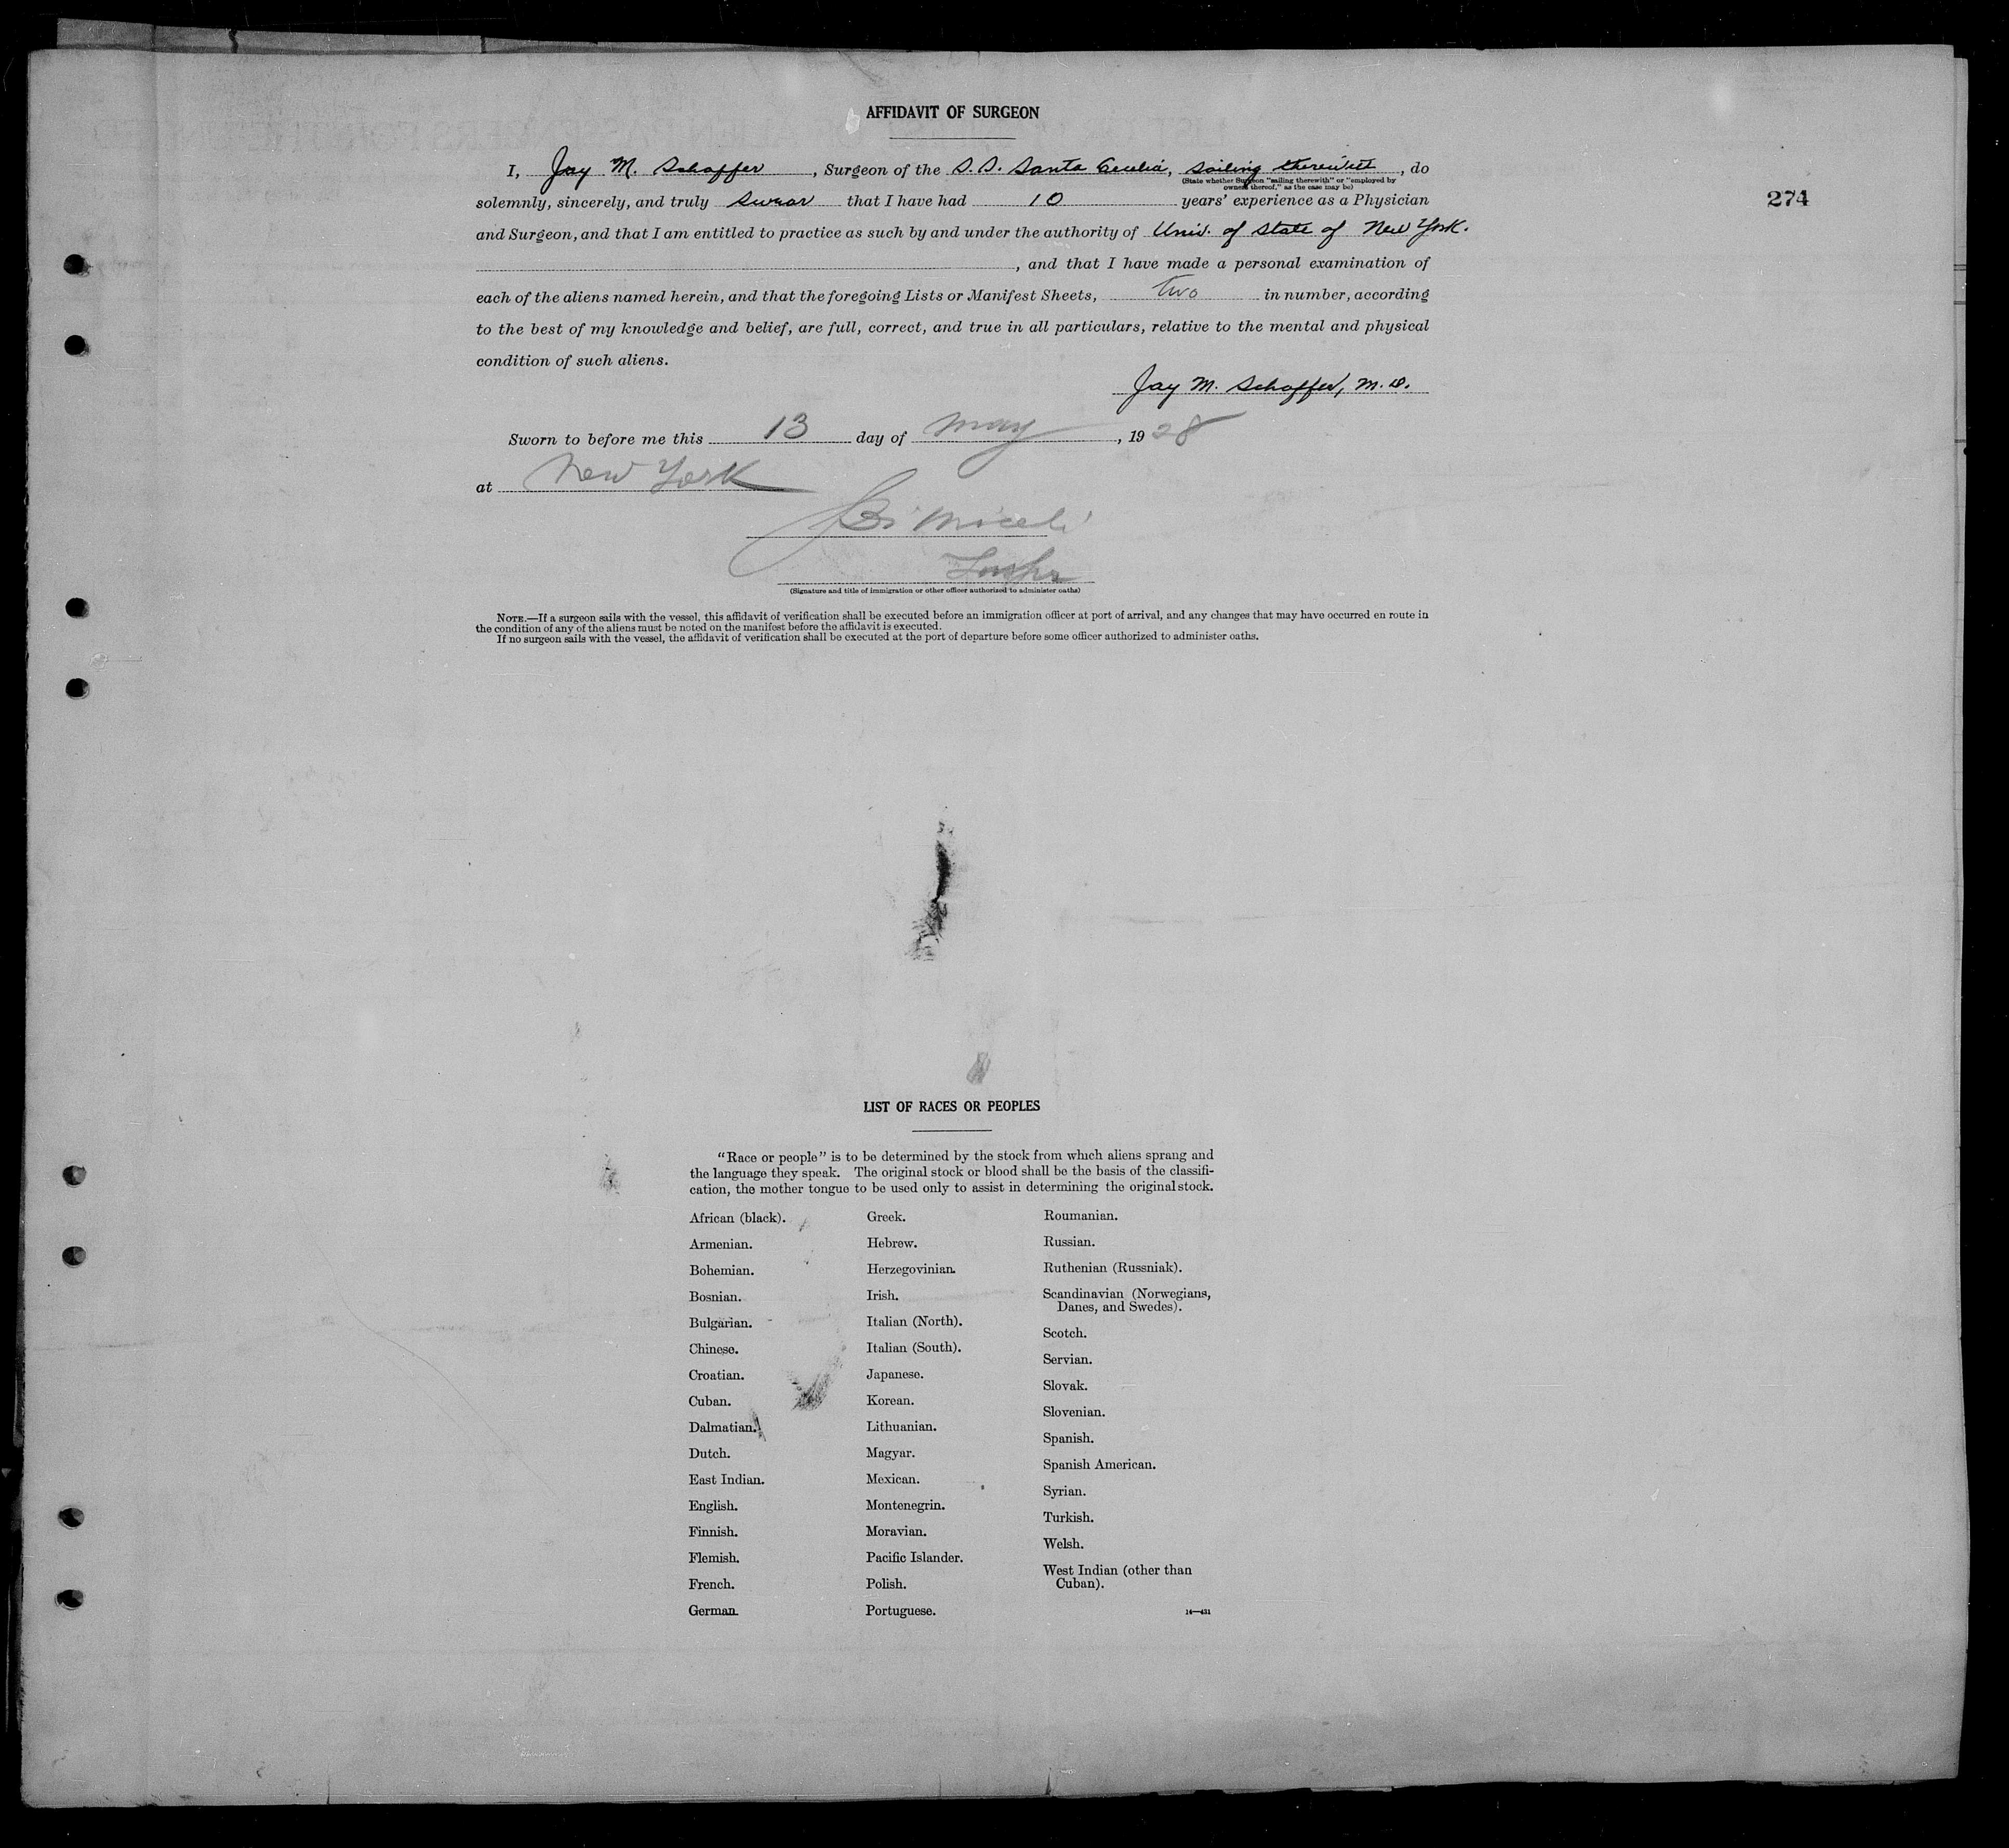 AFFIDAVIT OF SURGEON
I, Jay M. Schaffer, Surgeon of the S.S. Santa Cecelia, sailing therewith, do
(State whether Surgeon "sailing therewith" or "employed by
owners thereof," as the case may be)
274
solemnly, sincerely, and truly swear that I have had 10 years' experience as a Physician
and Surgeon, and that I am entitled to practice as such by and under the authority of Univ. of State of New York.
, and that I have made a personal examination of
each of the aliens named herein, and that the foregoing Lists or Manifest Sheets, two in number, according
to the best of my knowledge and belief, are full, correct, and true in all particulars, relative to the mental and physical
condition of such aliens.
Jay M. Schaffer, M.D.
Sworn to before me this 13 day of May, 1928
at New York
Miceli
(Signature and title of immigration or other officer authorized to administer oaths)
NOTE.—If a surgeon sails with the vessel, this affidavit of verification shall be executed before an immigration officer at port of arrival, and any changes that may have occurred en route in
the condition of any of the aliens must be noted on the manifest before the affidavit is executed.
If no surgeon sails with the vessel, the affidavit of verification shall be executed at the port of departure before some officer authorized to administer oaths.
LIST OF RACES OR PEOPLES
"Race or people" is to be determined by the stock from which aliens sprang and
the language they speak. The original stock or blood shall be the basis of the classifi-
cation, the mother tongue to be used only to assist in determining the original stock.
African (black).
Armenian.
Bohemian.
Bosnian.
Bulgarian.
Chinese.
Croatian.
Cuban.
Dalmatian.
Dutch.
East Indian.
English.
Finnish.
Flemish.
French.
German.
Greek.
Hebrew.
Herzegovinian.
Irish.
Italian (North).
Italian (South).
Japanese.
Korean.
Lithuanian.
Magyar.
Mexican.
Montenegrin.
Moravian.
Pacific Islander.
Polish.
Portuguese.
Roumanian.
Russian.
Ruthenian (Russniak).
Scandinavian (Norwegians,
Danes, and Swedes).
Scotch.
Servian.
Slovak.
Slovenian.
Spanish.
Spanish American.
Syrian.
Turkish.
Welsh.
West Indian (other than
Cuban).
14—431